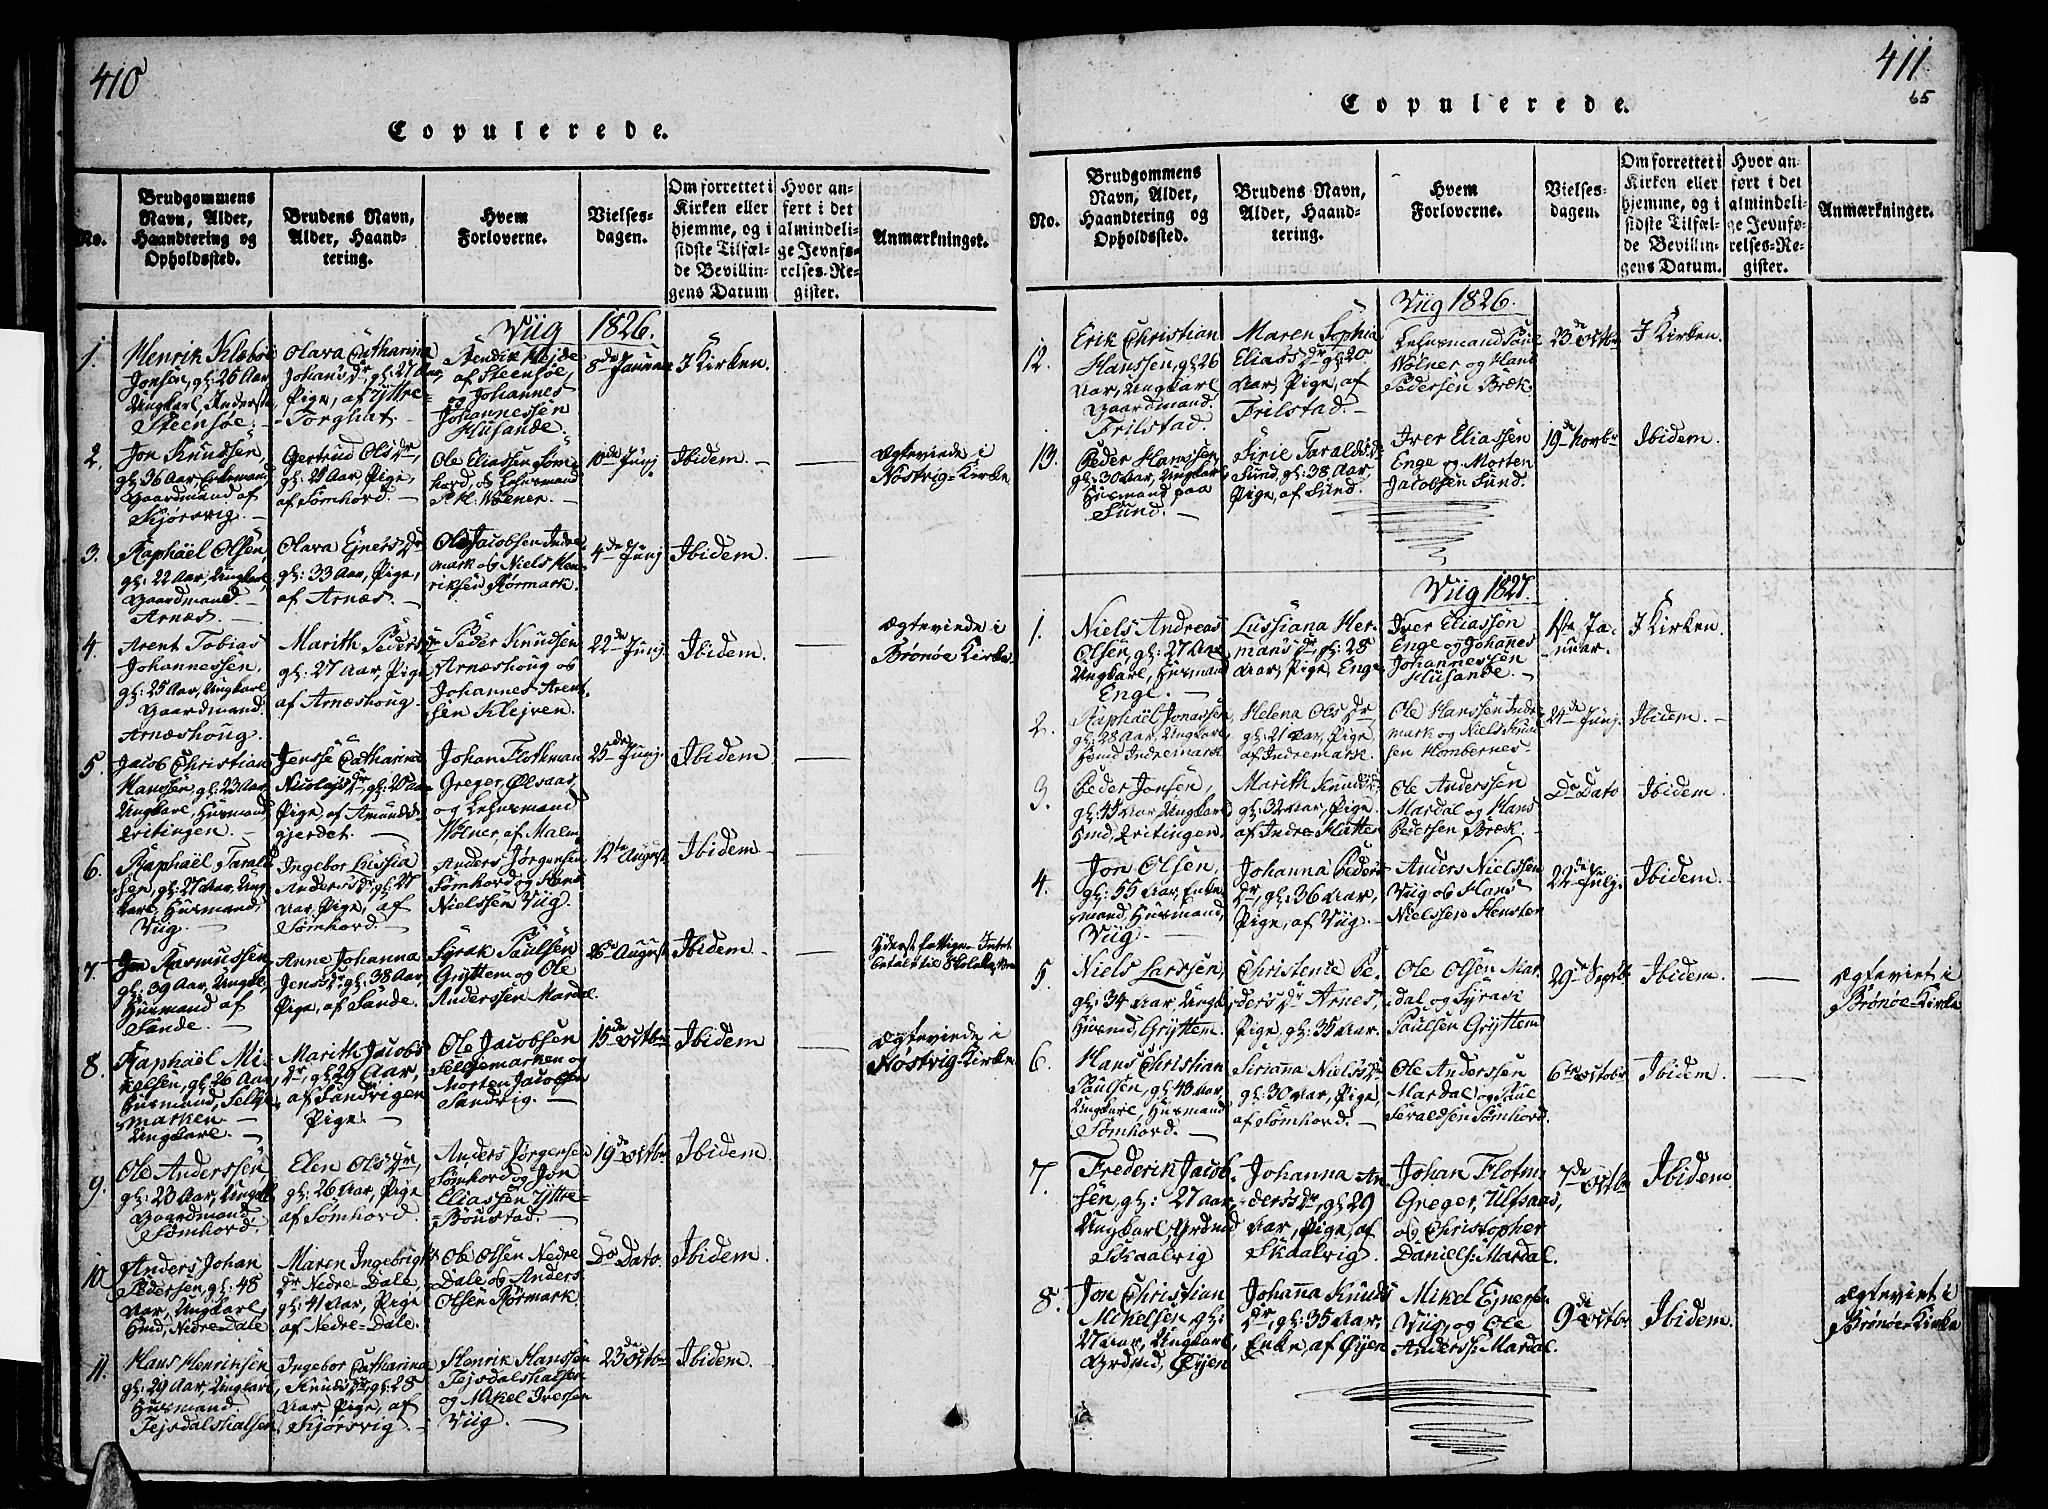 410
Copulerede.
No.
Brudgommens
Navn, Alder,
Haandtering og
Opholdssted.
Brudens Navn,
Alder, Haand-
tering.
Hvem
Forloverne.
Vielses-
dagen.
Om forrettet i
Kirken eller
hjemme, og i
sidste Tilfæl-
de Bevillin-
gens Datum
Hvor an-
ført i det
almindeli-
ge Jevnfø-
relses-Re-
gister.
Anmærkninger.
Viig 1826.
1.
Henrik Klæboe
Jonsen, gl: 25 Aar,
Ungkarl,
Steensøe.
Olava Catharina
Johans Dr, gl: 27 Aar,
Pige, af Yttre-
Torghat.
Hendrik Hejde
af Steensøe,
og Johannes
Johannessen
Husande.
8de Januar
I Kirken.
2.
Jon Knudsen,
gl: 36 Aar, Enkemand,
Gaardmand af
Skjørsvig.
Gertrud Ols Dr,
gl: 29 Aar, Pige,
af Sømhord.
Ole Eliassen Søm-
hord, og Lehnsmand
P. M. Wolner.
10de Junj.
Ibidem.
Ægteviede i
Nøstvig-Kirke.
3.
Raphaël Olsen,
gl: 22 Aar, Ungkarl,
Gaardmand.
Arnæs.
Olava Ejners Dr
gl: 33 Aar, Pige,
af Arnæs.
Ole Jacobsen Indre-
mark og Niels Hen-
riksen Rørmark.
4de Junj
Ibidem.
4.
Arent Tobias
Johannessen,
gl: 25 Aar, Ungkarl
Gaardmand.
Arnæshoug.
Marith Peders Dr
gl: 27 Aar, Pige,
af Arnæshoug.
Peder Knudsen
Arnæshoug og
Johannes Arent-
sen Klejven.
22de Junj.
Ibidem.
Ægteviede i
Brønøe Kirke.
5.
Jacob Christian
Hanssen, gl: 23 Aar,
Ungkarl, Husmand
Eritingen.
Jensse Catharina
Nicolajs Dr, gl: 20 Aar
Pige, af Amunds-
gjerdet.
Johan Flothman
Greger, Ølsaas,
og Lehnsmand
Wolner, af Malm
25de Junj.
Ibidem.
6.
Raphaël Tarald-
sen, gl: 27 Aar, Ung-
karl, Husmand,
Viig.
Ingebor Lussia
Anders Dr, gl: 27
Aar, Pige, af
Sømhord.
Anders Jørgensen
Sømhord, og Hans
Nielssen Viig.
12te August
Ibidem.
7.
Jon Rasmussen
gl: 39 Aar, Ungkl,
Husmand af
Sande.
Anne Johanna
Jens Dr, gl: 38 Aar,
Pige, af Sande.
Syrak Paulsen
Gryttem og Ole
Anderssen Mardal.
26de August
Ibidem.
Yderst fattige. Intet
betalt til Skolekassen
8.
Raphaël Mi-
kelsen, gl: 26 Aar,
Husmand, Selje-
marken
Ungkarl.
Marith Jacobs
Dr, gl: 29 Aar,
af Sandvigen
Pige.
Ole Jacobsen
Seljemarken og
Morten Jacobsen
Sandvig.
15de Octbr
Ibidem
Ægteviede i
Nøstvig-Kirke.
9.
Ole Anderssen,
gl: 23 Aar, Ungkl,
Gaardmand
Sømhord.
Elen Ols Dr,
gl: 26 Aar, Pige
af Sømhord.
Anders Jørgensen
Sømhord og Jon
Eliassen Yttre-
Bøustad.
19de Octbr
Ibidem.
10.
Anders Johan
Pedersen, gl: 48
Aar, Ungkarl,
Hmd, Nedre-Dale
Maren Ingebrigts
Dr Nedre-Dale
gl: 41 Aar, Pige
af Nedre-Dale.
Ole Olsen Nedre
Dale og Anders
Olsen Rørmark.
Do Dato.
Ibidem.
11.
Hans Henriksen
gl: 29 Aar, Ungkarl,
Husmand.
Tejsdalshalsen.
Ingebor Catharina
Knuds Dr, gl: 28
Aar, Pige, af
Skjørsvig.
Henrik Hanssen
Tejsdalshalsen
og Mikel Iversen
Viig.
23de Octbr
Ibidem.
411
65
Copulerede.
No.
Brudgommens
Navn, Alder,
Haandtering og
Opholdssted.
Brudens Navn,
Alder, Haand-
tering.
Hvem
Forloverne.
Vielses-
dagen.
Om forrettet i
Kirken eller
hjemme, og i
sidste Tilfæl-
de Bevillin-
gens Datum.
Hvor an-
ført i det
almindeli-
ge Jevnfø-
relses-Re-
gister.
Anmærkninger.
Viig 1826.
12.
Erik Christian
Hanssen, gl: 26
Aar, Ungkarl,
Gaardmand.
Frilstad.
Maren Sophia
Elias Dr, gl: 20
Aar, Pige, af
Frilstad.
Lehnsmand Paul
Wolner og Hans
Pedersen Bræk.
23de Octbr
I Kirken.
13.
Peder Hanssen,
gl: 30 Aar, Ungkarl,
Husmand paa
Sund.
Sirie Taralds Dr
Sund, gl: 38 Aar
Pige, af Sund.
Iver Eliassen
Enge og Morten
Jacobsen Sund.
19de Novbr
Ibidem.
Viig 1827.
1.
Niels Andreas
Olsen, gl: 27 Aar,
Ungkarl, Husmand
Enge.
Lussiana Her-
mans Dr, gl: 28
Aar, Pige, Enge
Iver Eliassen
Enge og Johannes
Johannessen
Husande.
1ste Ja-
nuar.
I Kirken.
2.
Raphaël Jonassen,
gl: 28 Aar, Ungkarl,
Hmd Indremark
Helena Ols Dr
gl: 21 Aar, Pige,
af Indremark.
Ole Hanssen Indre
mark og Niels Knud
sen Hombernes.
24de Junj.
Ibidem.
3.
Peder Jonsen,
gl: 45 Aar, Ungkarl
Hmd, Eritingen.
Marith Knuds Dr
gl: 32 Aar, Pige,
af Indre-Slatten
Ole Anderssen
Mardal og Hans
Pedersen Bræk.
Do Dato
Ibidem.
4.
Jon Olsen,
gl: 55 Aar, Enke-
mand, Husmand,
Viig.
Johanna Peders
Dr, gl: 36 Aar,
Pige, af Viig.
Anders Nielssen
Viig og Hans
Nielssen Hensten
22de Julj.
Ibidem.
5.
Niels Larssen,
gl: 34 Aar, Ungkl
Husmd, Gryttem.
Christence Pe-
ders Dr Arnes,
Pige, gl: 35 Aar.
Ole Olsen Mar-
dal og Syrach
Paulsen Gryttem
29de Septbr
Ibidem.
Ægteviet i
Brønøe-Kirke
6.
Hans Christian
Paulsen, gl: 43 Aar,
Ungkarl, Husmand
Sømhord.
Sirianna Niels Dr
gl: 30 Aar, Pige
af Sømhord.
Ole Anderssen
Mardal og Paul
Taraldsen Sømhord.
6te Octobr
Ibidem.
7.
Frederik Jacob-
sen, gl: 27 Aar,
Ungkarl, Grdmd
Skaalvig
Johanna An-
ders Dr, gl: 29
Aar, Pige, af
Skaalvig.
Johan Flotm:
Greger, Ulfsaas,
og Christopher
Daniels: Mardal.
7de Octbr
Ibidem.
8.
Jon Christian
Mickelsen, gl:
27 Aar, Ungkarl,
Grdmd, Øÿen
Johanna Knuds
Dr, gl: 35 Aar,
Enke, af Øÿen
Mikel Ejnersen
Viig, og Ole
Anderss: Mardal.
9de Octbr
Ibidem.
Ægteviet i
Brønøe Kirke